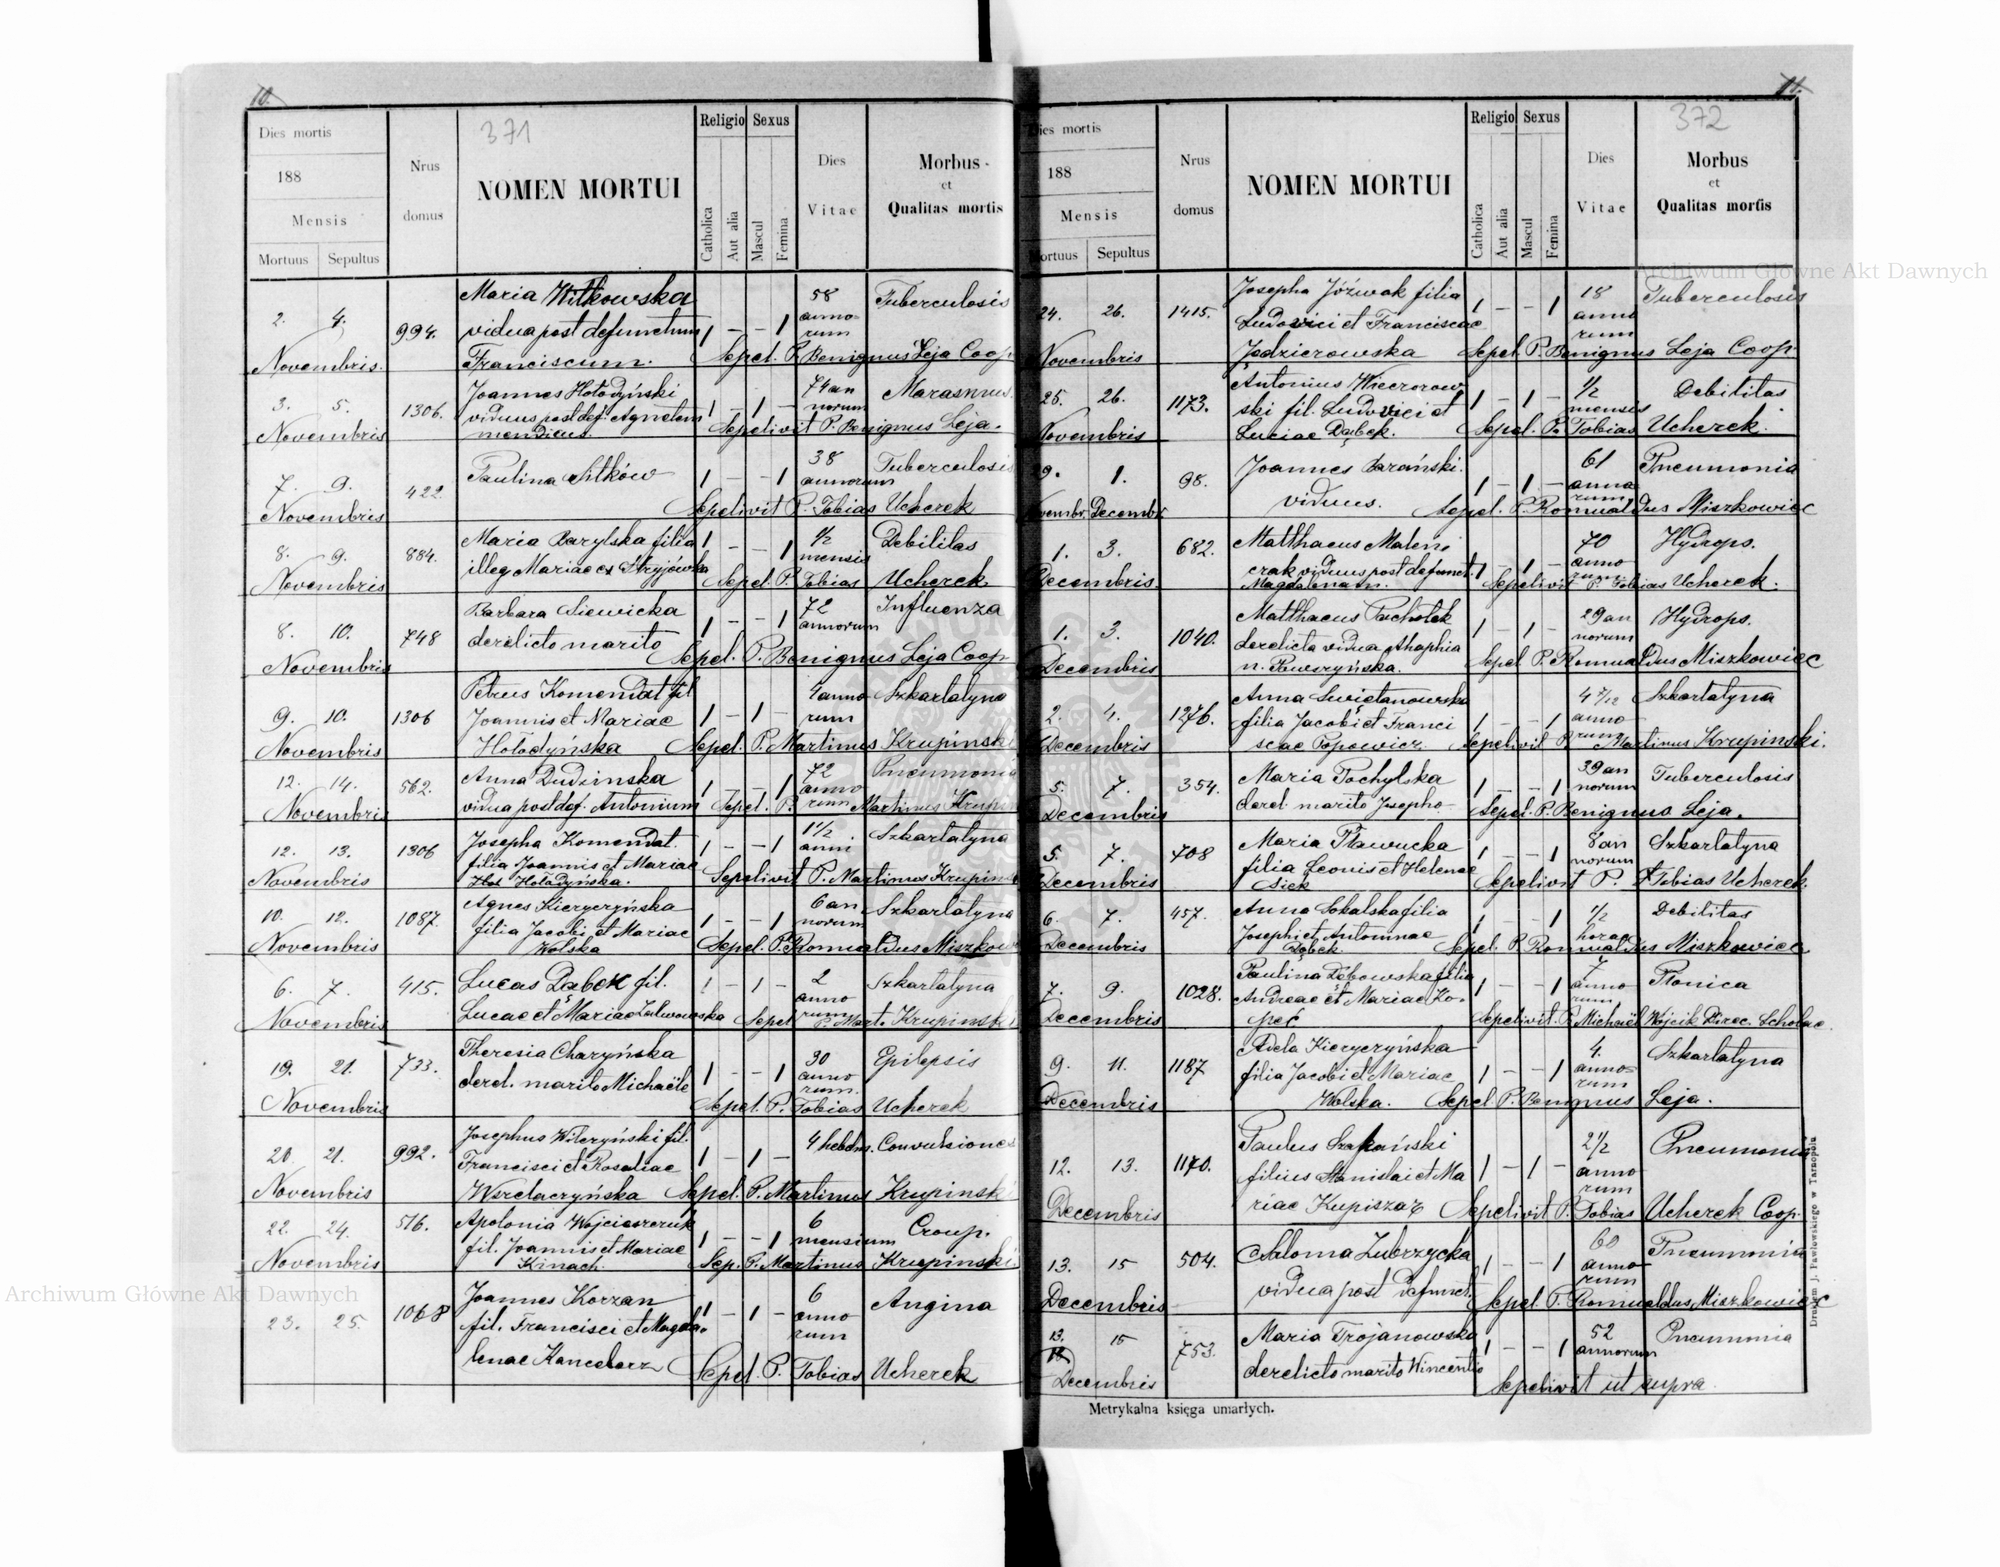 10.
371
Dies mortis
188
Mensis
Mortuus Sepultus
Nrus
domus
NOMEN MORTUI
Religio Sexus
Catholica
Aut alia
Mascul
Femina
Dies
Vitae
Morbus
et
Qualitas mortis
2. 4.
Novembris.
994.
Maria Witkowska
vidua post defunctum
Franciscum.
1 – – 1
58
anno-
rum
Tuberculosis
Sepel. P. Benignus Leja Coop
3. 5.
Novembris
1306.
Joannes Hołodyński
viduus post def. Agnetem
mendicus.
1 – 1 –
74 an
norum
Marasmus.
Sepelivit P. Benignus Leja.
7. 9.
Novembris
422.
Paulina Sitków
1 – – 1
38
annorum
Tuberculosis
Sepelivit P. Tobias Ucherek
8. 9.
Novembris
884.
Maria Barylska filia
illeg. Mariae ex Stryjowka
1 – – 1
1/2
mensis
Debilitas
Sepel. P. Tobias Ucherek
8. 10.
Novembris
748
Barbara Siewicka
derelicto marito
1 – – 1
72
annorum
Influenza
Sepel. P. Benignus Leja Coop
9. 10.
Novembris
1306
Petrus Komendat fil
Joannis et Mariae
Hołodyńska
1 – 1 –
4 anno
rum
Szkarlatyna
Sepel. P. Martinus Krupinski
12. 14.
Novembris
562.
Anna Dudzinska
vidua post def. Antonium
1 – – 1
72
anno
rum
Pneumonia
Sepel. P. Martinus Krupin
12. 13.
Novembris
1306
Josepha Komendat.
filia Joannis et Mariae
Hołodyńska.
1 – – 1
1 1/2
anni
Szkarlatyna
Sepelivit P. Martinus Krupins
10. 12.
Novembris
1087.
Agnes Kieryczyńska
filia Jacobi et Mariae
Wolska
1 – – 1
6 an
norum
Szkarlatyna
Sepel. P. Romualdus Miszkow
6. 7.
Novembris
415.
Lucas Dąbek fil.
Lucae et Mariae
1 – 1 –
2
anno
rum
Szkarlatyna
Sepel P. Mart. Krupinski
19. 21.
Novembris
733.
Theresia Charyńska
derel. marito Michaële
1 – – 1
30
anno
rum.
Epilepsis
Sepel. P. Tobias Ucherek
20. 21.
Novembris
992.
Josephus Wilczyński fil.
Francisci et Rosaliae
1 – 1 –
4 hebdm.
Convulsiones
Sepel. P. Martinus Krupinski
22. 24.
Novembris
516.
Apolonia Wojcieszczuk
fil. Joannis et Mariae
Kinach
1 – – 1
6
mensium
Croup.
Sep. P. Martinus Krupinski.
23. 25.
1068
Joannes Korzan
fil. Francisci et Magda-
lenae Kancelarz
1 – 1 –
6
anno
rum
Angina
Sepel. P. Tobias Ucherek
11.
372
Dies mortis
188
Mensis
Mortuus Sepultus
Nrus
domus
NOMEN MORTUI
Religio Sexus
Catholica
Aut alia
Mascul
Femina
Dies
Vitae
Morbus
et
Qualitas mortis
24. 26.
Novembris
1415.
Josepha Józwak filia
Ludovici et Franciscae
Jędzierowska
1 – – 1
18
anno
rum
Tuberculosis
Sepel. P. Benignus Leja Coop.
25. 26.
Novembris
1173.
Antonius Wieczorow
ski fil. Ludovici et
Luciae Dąbek.
1 – 1 –
1/2
mensis
Debilitas
Sepel. P. Tobias Ucherek.
29. 1.
Novembr. Decembr.
98.
Joannes Barański.
viduus.
1 – 1 –
61
anno
rum,
Pneumonia
Sepel. P. Romualdus Miszkowiec
1. 3.
Decembris
682.
Matthaeus Maleni
czak viduus post defunct.
Magdalenam.
1 – 1 –
70
anno
rum
Hydrops.
Sepelivit P. Tobias Ucherek.
1. 3.
Decembris
1040.
Matthaeus Pachołek
derelicta vidua Ahaphia
n. Pawszyńska.
1 – 1 –
29 an
norum
Hydrops.
Sepel P. Romualdus Miszkowiec
2. 4.
Decembris
1276.
Anna Swiętanowska
filia Jacobi et Franci
scae Popowicz.
1 – – 1
4 7/12
anno
rum
Szkarlatyna
Sepelivit P. Martinus Krupinski.
5. 7.
Decembris
354.
Maria Pochylska
derel. marito Josepho
1 – – 1
39 an
norum
Tuberculosis
Sepel. P. Benignus Leja.
5. 7.
Decembris
708
Maria Pławucka
filia Leonis et Helenae
Siek
1 – – 1
8 an
norum
Szkarlatyna
Sepelivit P. Tobias Ucherek
6. 7.
Decembris
457.
Anna Sokalska filia
Josephi et Antoninae
Dąbek
1 – – 1
1/2
horae
Debilitas
Sepel. P. Romualdus Miszkowiec
7. 9.
Decembris
1028.
Paulina Dębowska filia
Andreae et Mariae Ko-
peć
1 – – 1
7
anno
rum,
Płonica
Sepelivit. P. Michaël Wojcik Direc. Scholae.
9. 11.
Decembris
1187
Adela Kieryczyńska
filia Jacobi et Mariae
Wolska.
1 – – 1
4.
anno-
rum
Szkarlatyna
Sepel P. Benignus Leja.
12. 13.
Decembris
1170.
Paulus Szakański
filius Stanislai et Ma
riae Kupiszak
1 – 1 –
2 1/2
anno
rum
Pneumonia
Sepelivit P. Tobias Ucherek Coop.
13. 15
Decembris
504.
Saloma Zubrzycka
vidua post defunct.
1 – – 1
60
anno-
rum
Pneumonia
Sepel. P. Romualdus Miszkowiec
13. 15
Decembris
753.
Maria Trojanowska
derelicto marito Wincentio
1 – – 1
52
annorum
Pneumonia
Sepelivit ut supra.
Metrykalna księga umarłych.
Drukiem J. Pawłowskiego w Tarnopolu
Archiwum Główne Akt Dawnych
Archiwum Główne Akt Dawnych